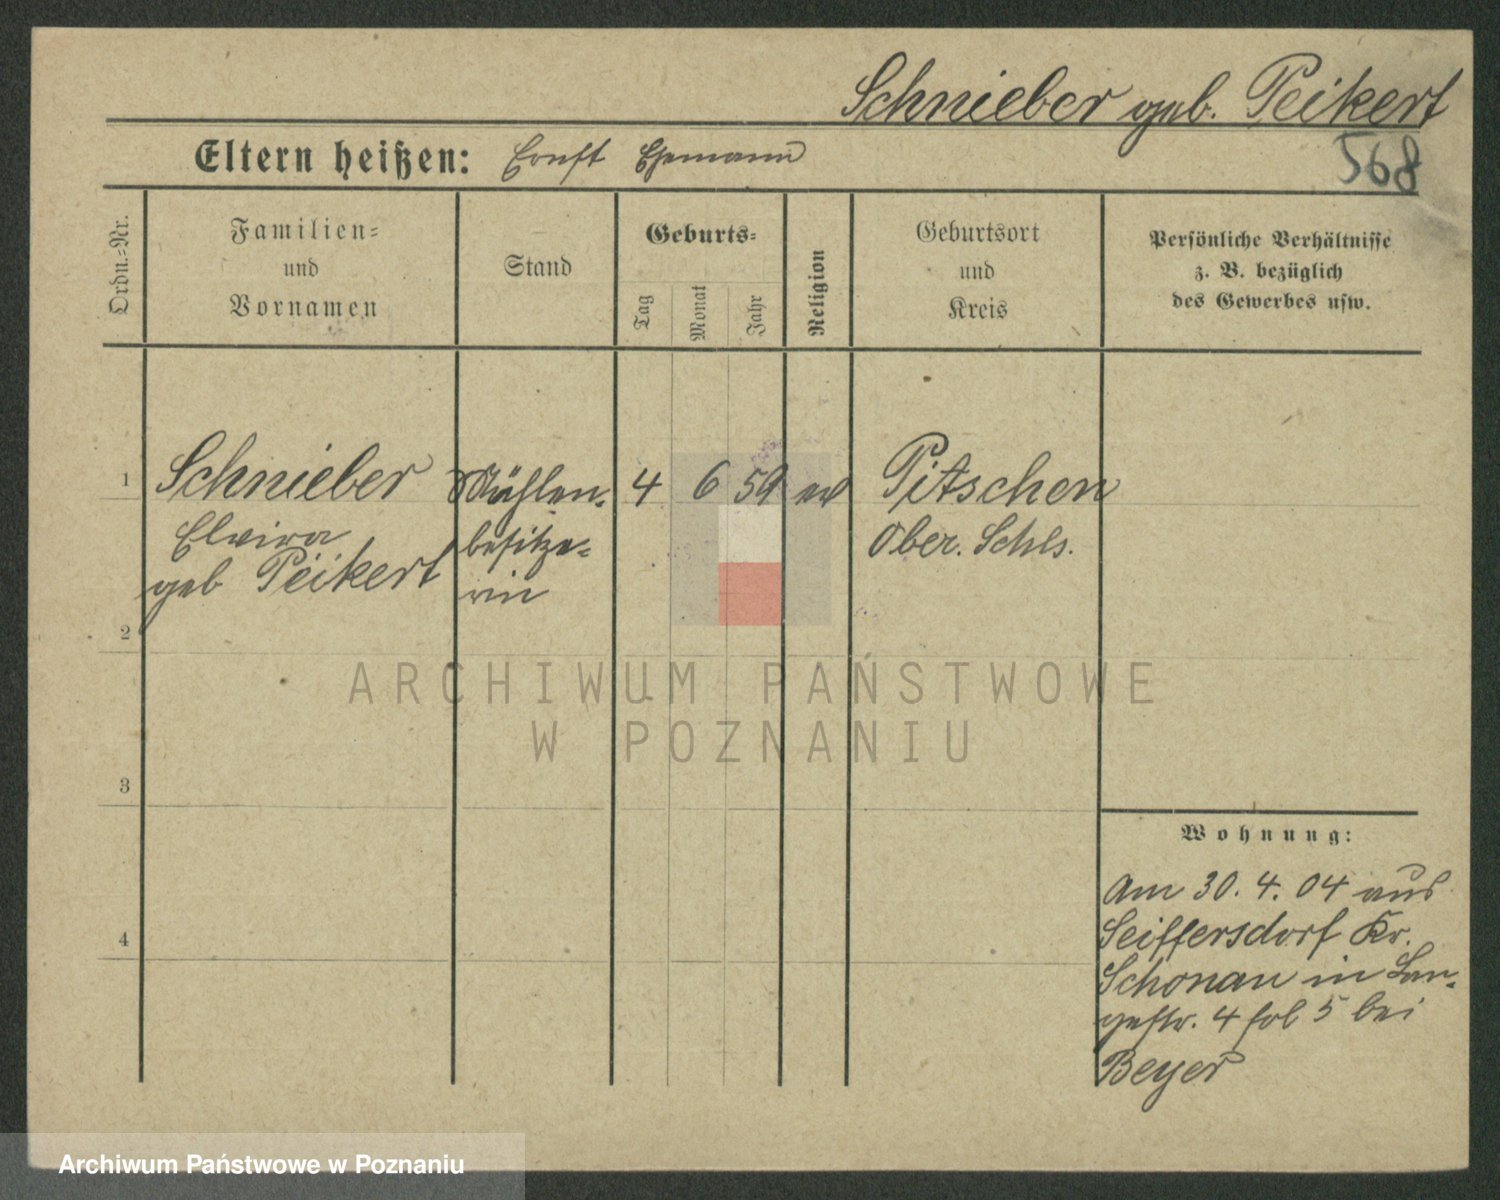 Schnieber geb. Peikert
568
Eltern heißen: Ernst Ehemann
Ordn.-Nr.
Familien-
und
Vornamen
Stand
Geburts-
Tag
Monat
Jahr
Religion
Geburtsort
und
Kreis
Persönliche Verhältnisse
z. B. bezüglich
des Gewerbes usw.
1
Schnieber
Elvira
geb Peikert
Mühlen-
besitze-
rin
4 6 59
Pitschen
Ober. Schls.
2
ARCHIWUM PAŃSTWOWE
W POZNANIU
3
Wohnung:
Am 30. 4. 04 aus
Seiffersdorf Kr.
Schonau in Lan-
gestr. 4 fol 5 bei
Beyer
4
Archiwum Państwowe w Poznaniu